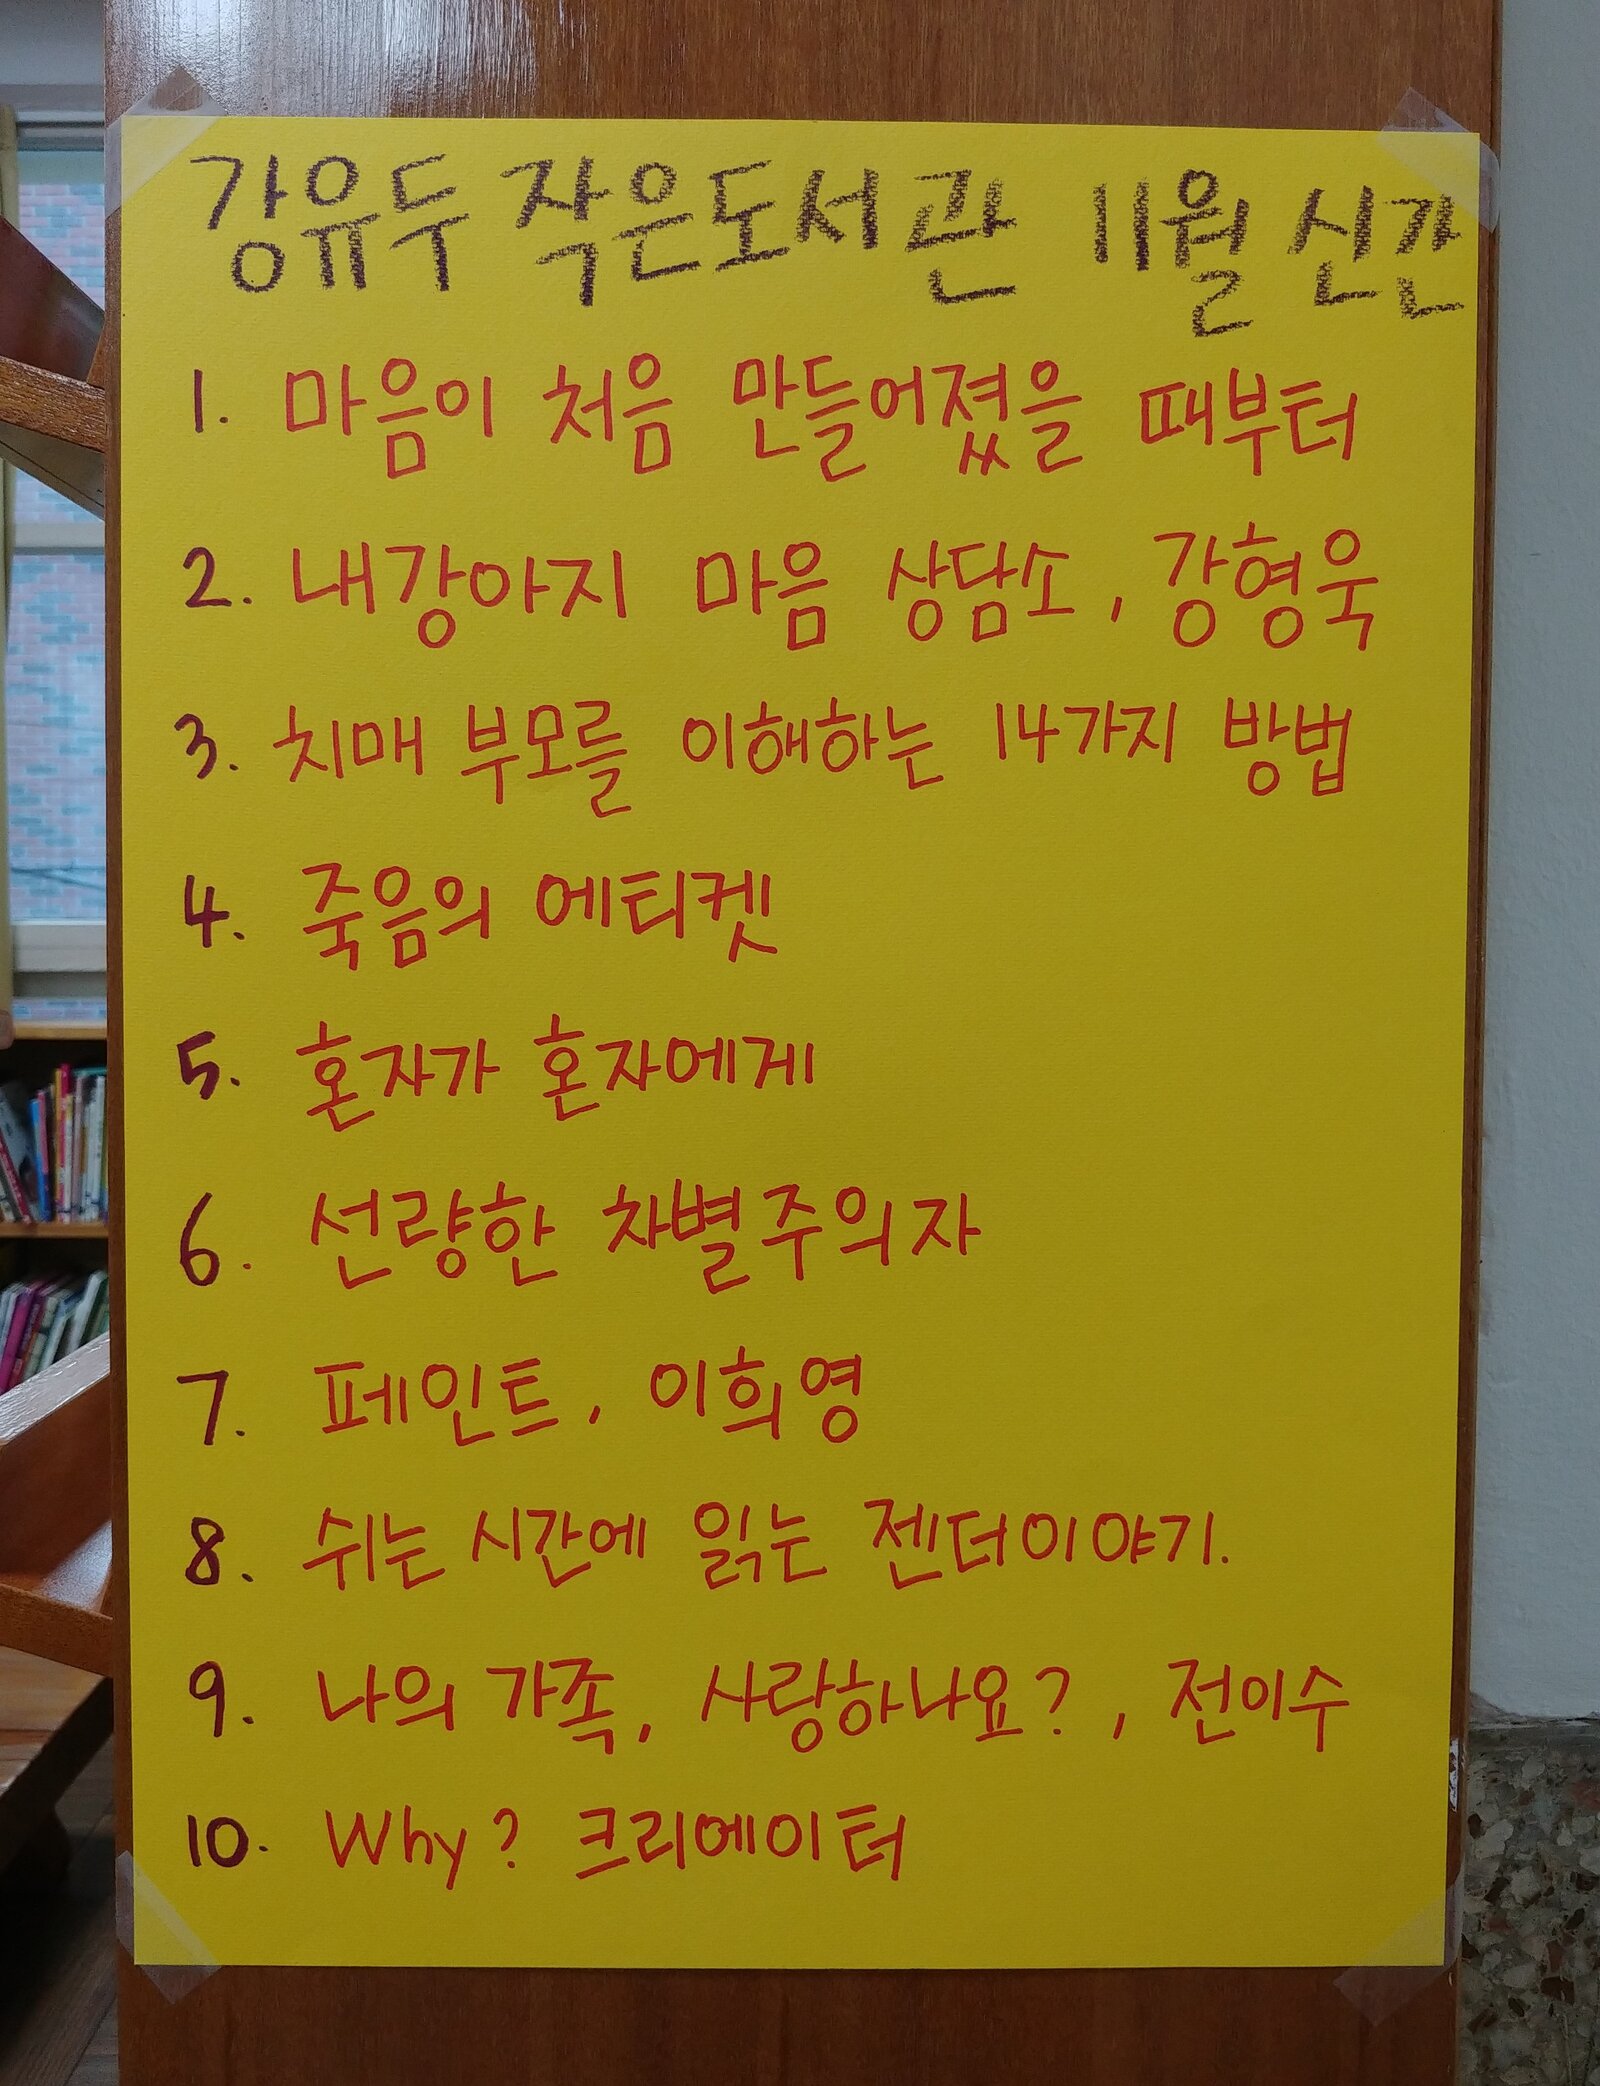 강유두 작은도서관 11월 신간
1. 마음이 처음 만들어졌을 때부터
2. 내강아지 마음 상담소, 강형욱
3. 치매 부모를 이해하는 14가지 방법
4. 죽음의 에티켓
5. 혼자가 혼자에게
6. 선량한 차별주의자
7. 페인트, 이희영
8. 쉬는 시간에 읽는 젠더이야기.
9. 나의 가족, 사랑하나요?, 전이수
10. Why? 크리에이터